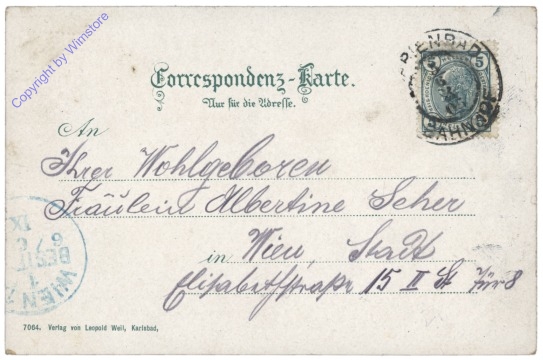 Copyright by Wimstore
MARIENBAD
5
BAHNHOF
Correspondenz-Karte.
Nur für die Adresse.
An
Ihrer Wohlgeboren
Fräulein Albertine Seher
in Wien, Stadt
Elisabethstraße 15 II St Tür 8
WIEN
BESTELLT
IX
7064. Verlag von Leopold Weil, Karlsbad,